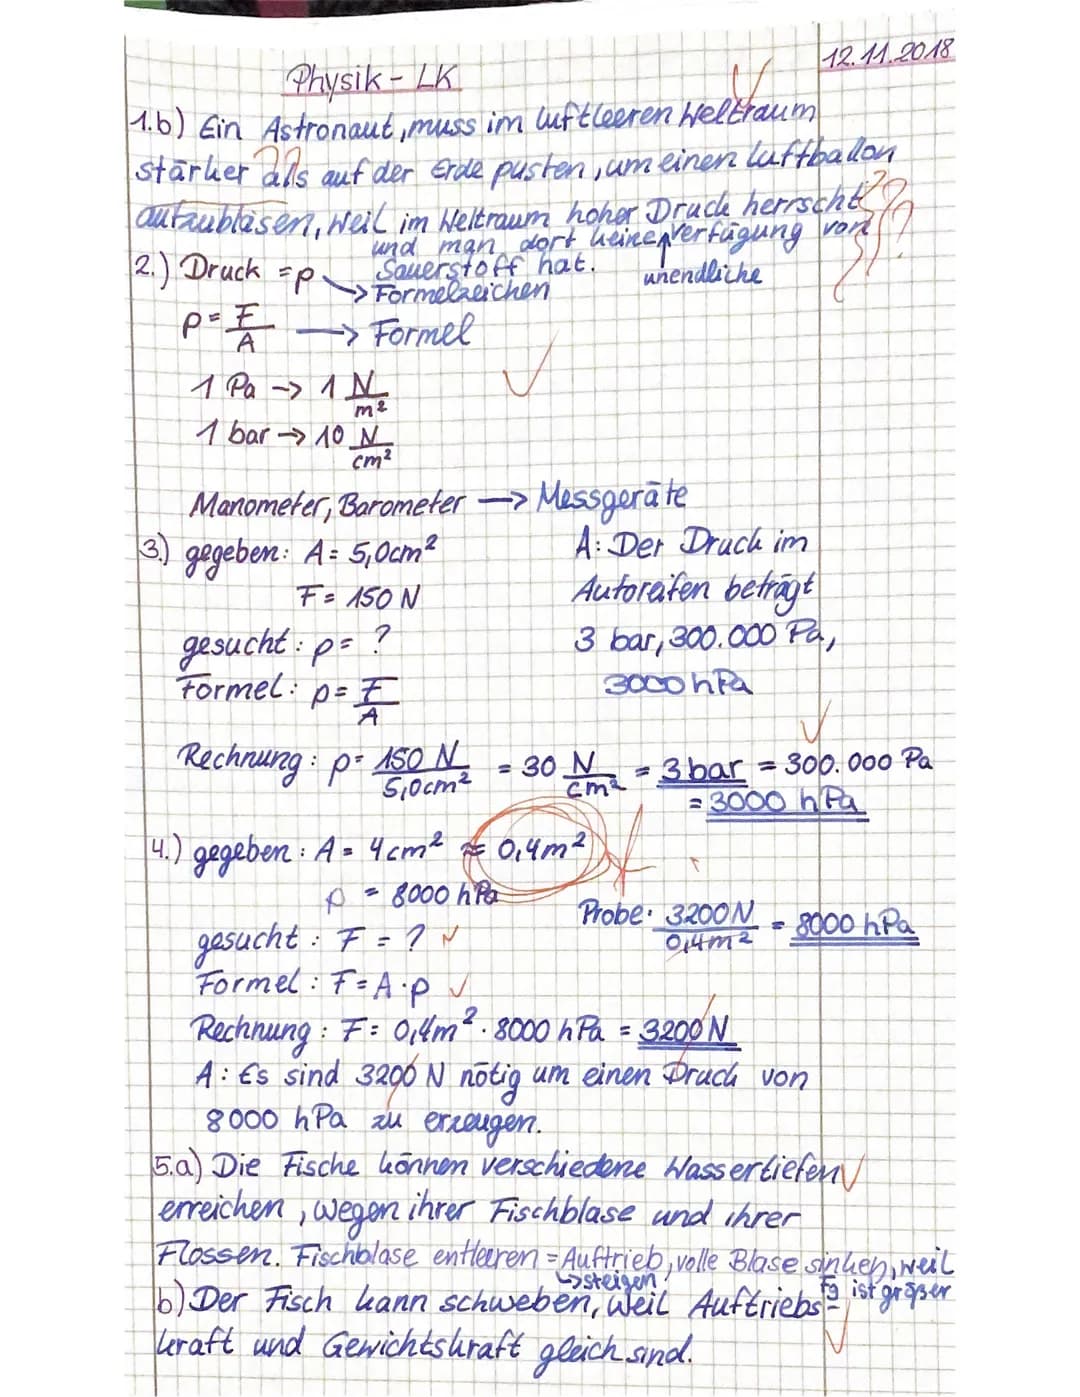 12.11.2018
Physik - LK
1.b) Ein Astronaut, muss im luftleeren Weltraum
stärker als auf der Erde pusten, um einen Luftballon
aufzublasen, weil im Weltraum hoher Druck herrscht
und man dort keine unendliche Verfügung von
Sauerstoff hat.
2.) Druck = p
→ Formelzeichen
p = F/A → Formel
1 Pa → 1 N/m²
1 bar → 10 N/cm²
Manometer, Barometer → Messgeräte
3.) gegeben: A = 5,0cm²
F = 150 N
gesucht: p = ?
Formel: p = F/A
A: Der Druck im
Autoreifen beträgt
3 bar, 300.000 Pa,
3000 hPa
Rechnung: p = 150 N/5,0cm² = 30 N/cm² = 3 bar = 300.000 Pa
= 3000 hPa
4.) gegeben: A = 4cm² ≈ 0,4m²
p = 8000 hPa
gesucht: F = ?
Formel: F = A · p
Probe: 3200N/0,4m² = 8000 hPa
Rechnung: F = 0,4m² · 8000 hPa = 3200 N
A: Es sind 3200 N nötig um einen Druck von
8000 hPa zu erzeugen.
5.a) Die Fische können verschiedene Wassertiefen
erreichen, wegen ihrer Fischblase und ihrer
Flossen. Fischblase entleeren = Auftrieb, volle Blase sinken, weil
↳ steigen
Fg ist größer
b) Der Fisch kann schweben, weil Auftriebs-
kraft und Gewichtskraft gleich sind.